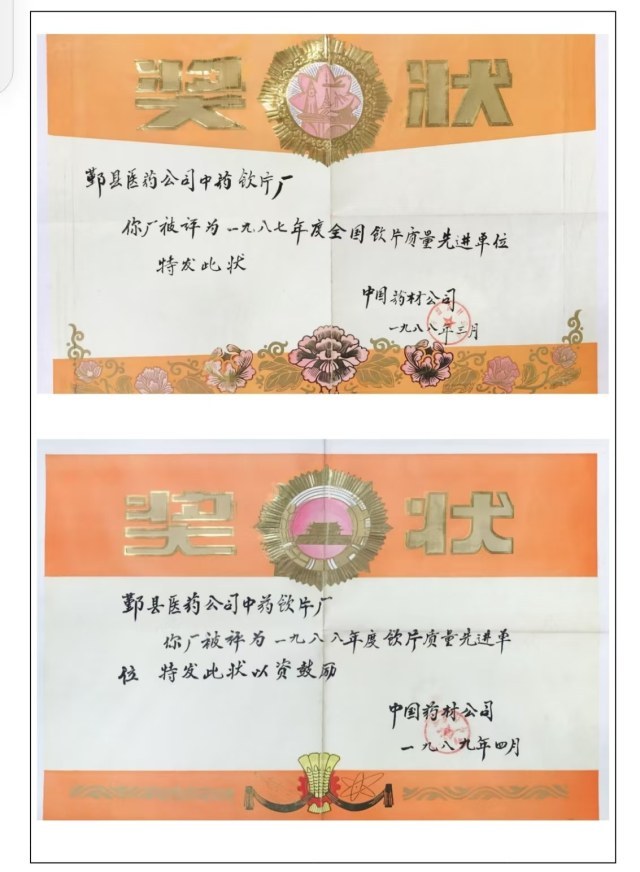 奖状
鄞县医药公司中药饮片厂
你厂被评为一九八七年度全国饮片质量先进单位
特发此状
中国药材公司
一九八八年三月
奖状
鄞县医药公司中药饮片厂
你厂被评为一九八八年度饮片质量先进单
位 特发此状以资鼓励
中国药材公司
一九八九年四月